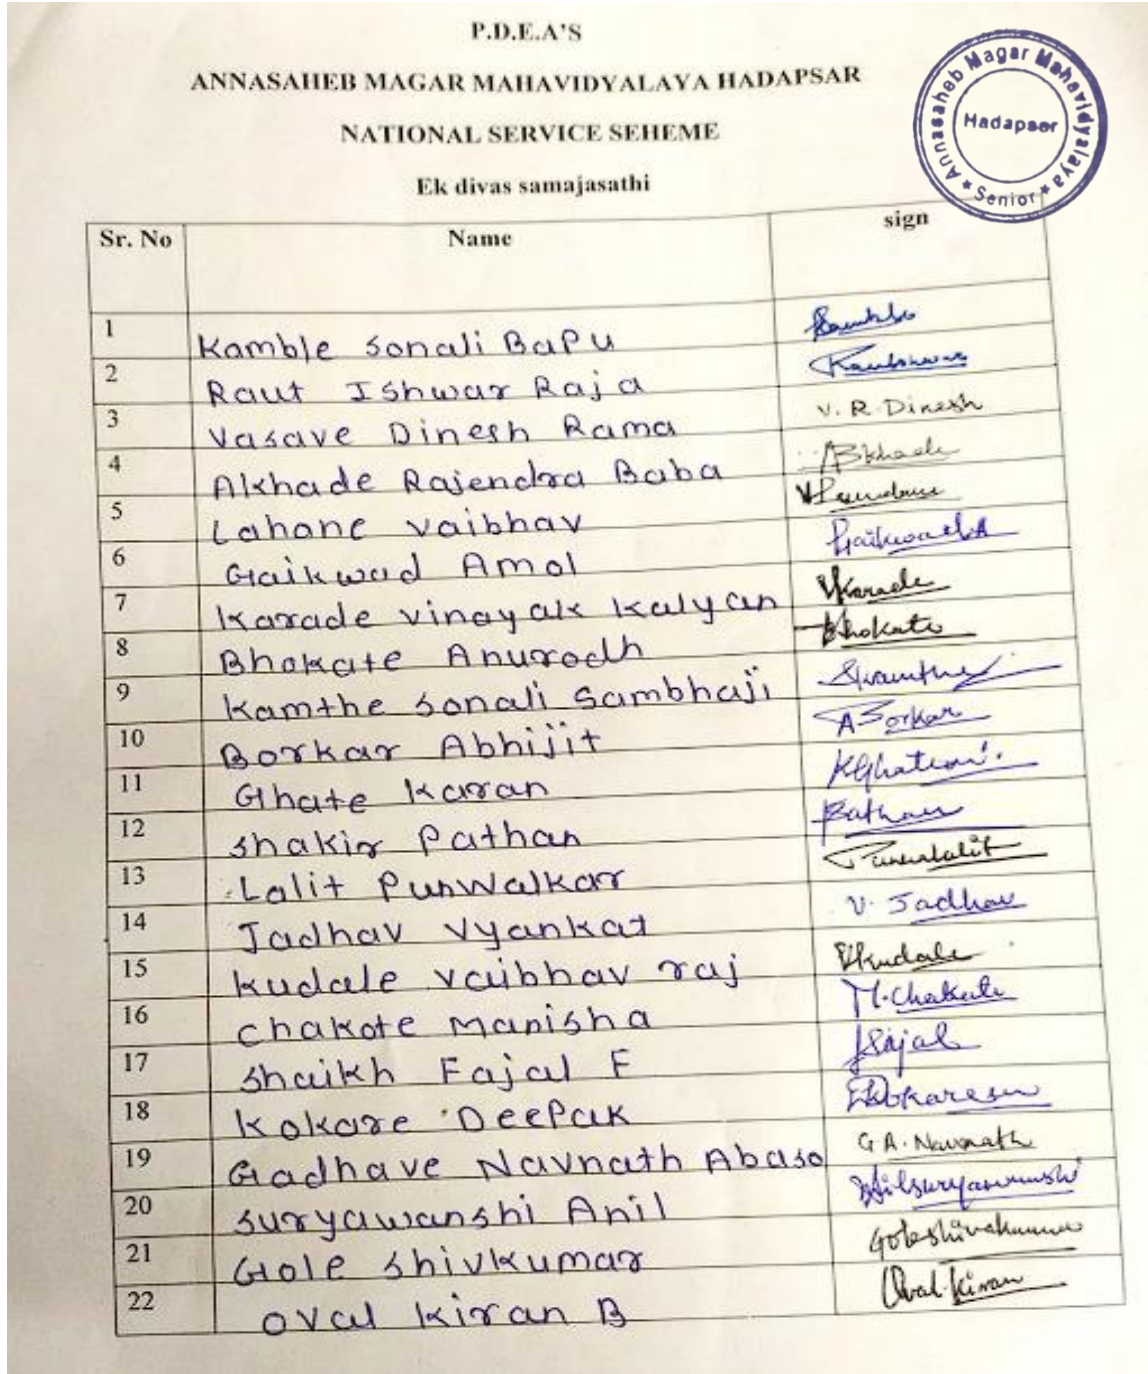 P.D.E.A'S
ANNASAHEB MAGAR MAHAVIDYALAYA HADAPSAR
NATIONAL SERVICE SEHEME
Ek divas samajasathi
Annasaheb Magar Mahavidyalaya
Hadapsar
★ Senior ★
Sr. No Name sign
1 Kamble Sonali Bapu
2 Raut Ishwar Raja
3 Vasave Dinesh Rama V. R. Dinesh
4 Akhade Rajendra Baba
5 Lahane Vaibhav
6 Gaikwad Amol Gaikwad A
7 Karade Vinayak Kalyan VKarade
8 Bhokate Anurodh Bhokate
9 Kamthe Sonali Sambhaji
10 Borkar Abhijit A Borkar
11 Ghate Karan
12 Shakir Pathan Pathan
13 Lalit Punwalkar
14 Jadhav Vyankat V. Jadhav
15 Kudale Vaibhav raj VKudale
16 Chakote Manisha M. Chakote
17 Shaikh Fajal F
18 Kokare Deepak
19 Gadhave Navnath Abaso G A. Navnath
20 Suryawanshi Anil
21 Gole Shivkumar Gole Shivakumar
22 Oval Kiran B Oval Kiran